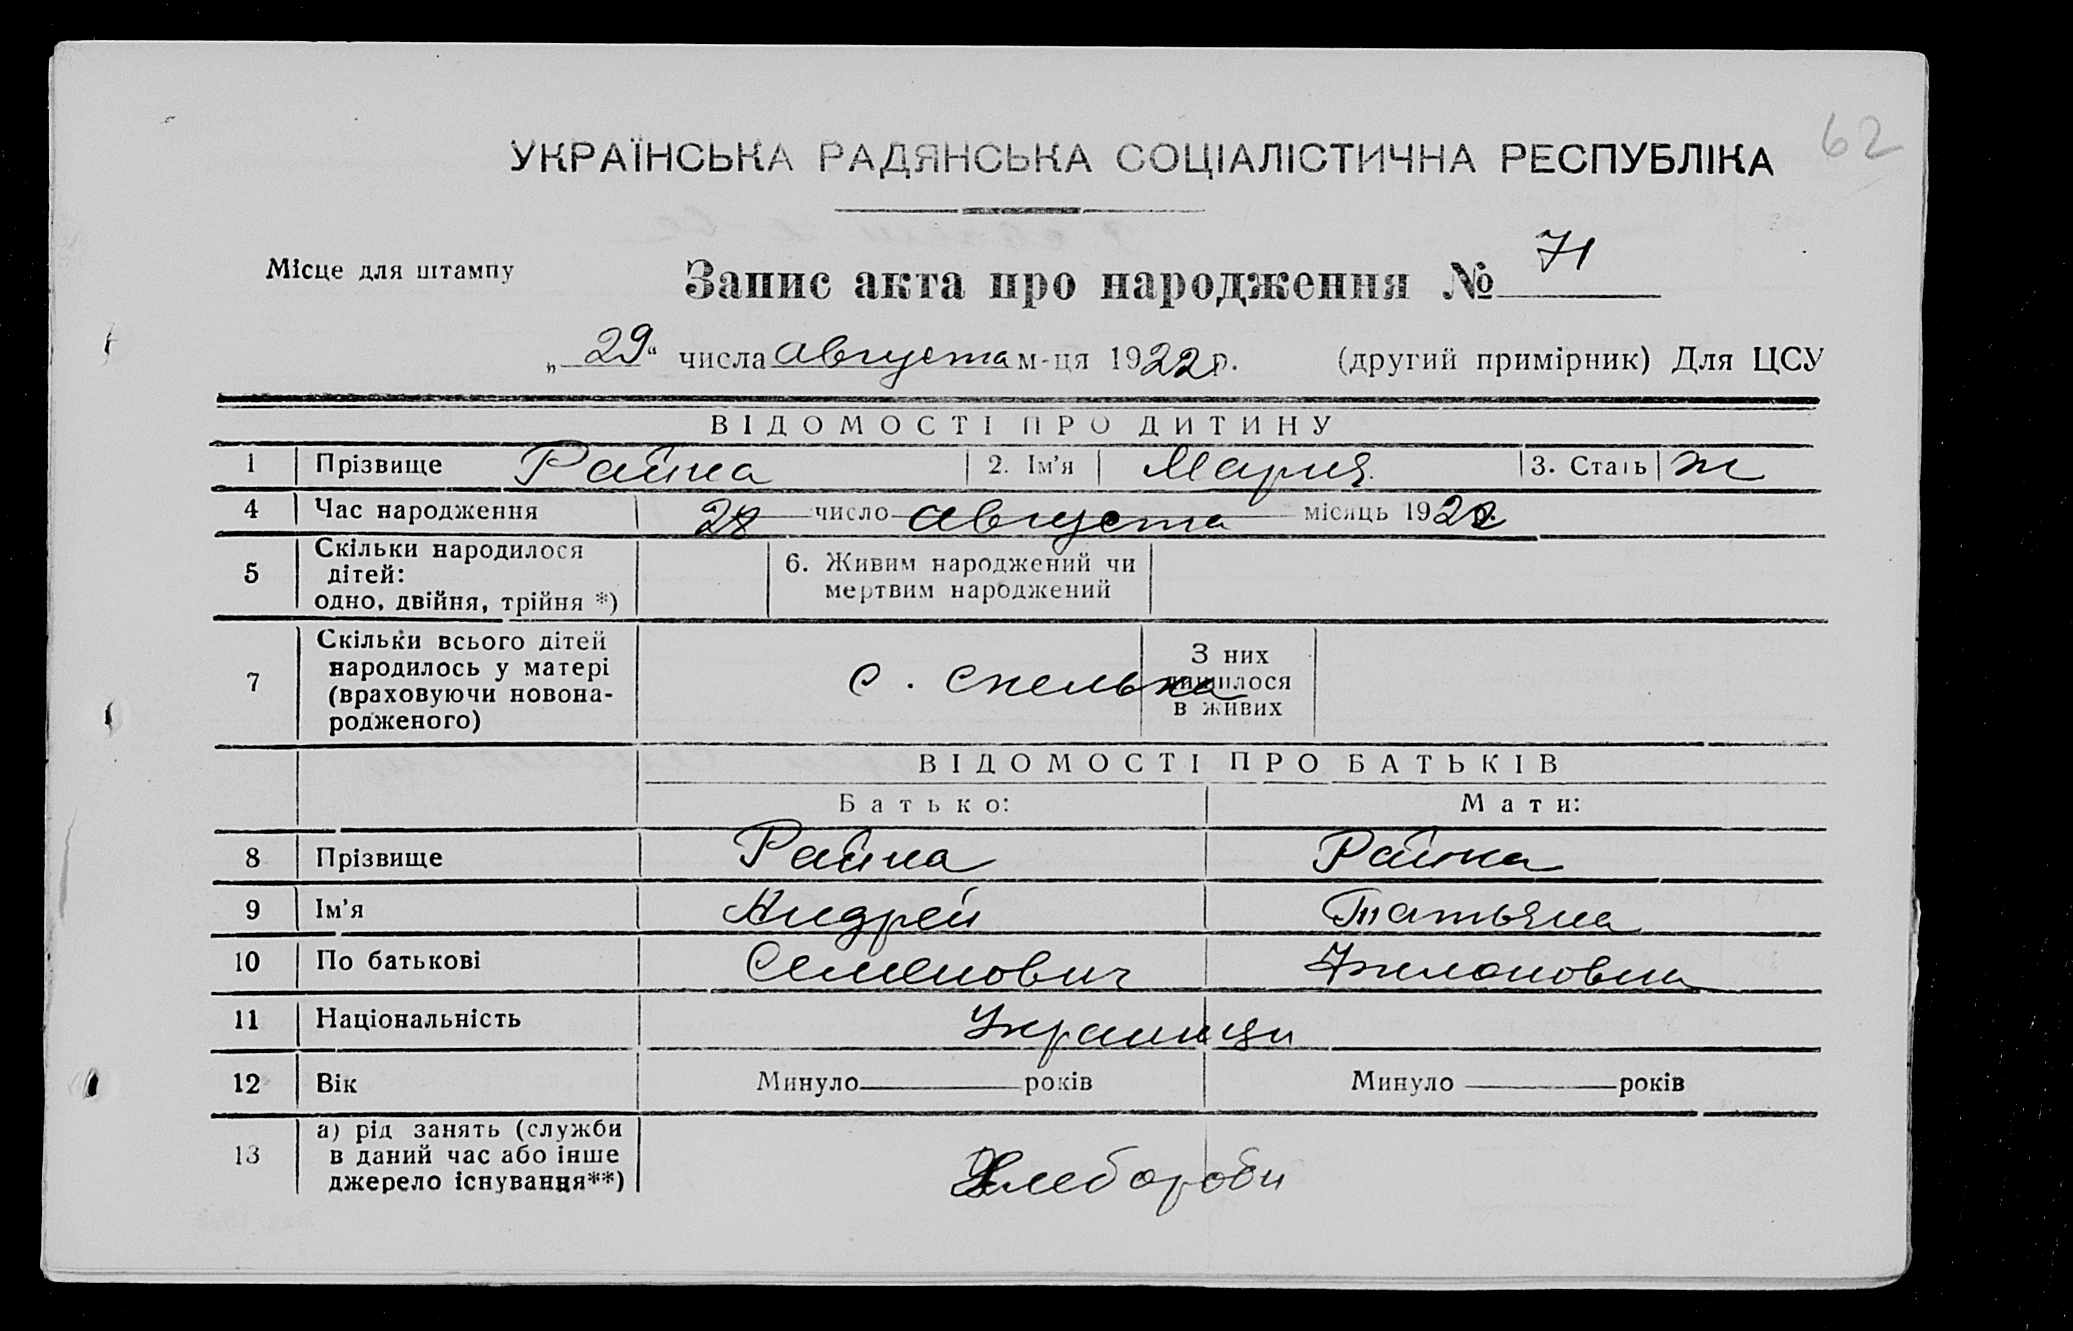 62
УКРАЇНСЬКА РАДЯНСЬКА СОЦІАЛІСТИЧНА РЕСПУБЛІКА
Місце для штампу
Запис акта про народження № 71
„29“ числа августа м-ця 1922 р. (другий примірник) Для ЦСУ
ВІДОМОСТІ ПРО ДИТИНУ
1 Прізвище Райка 2. Ім'я Мария 3. Стать ж
4 Час народження 28 число августа місяць 1922
5 Скільки народилося дітей: одно, двійня, трійня *) 6. Живим народжений чи мертвим народжений
7 Скільки всього дітей народилось у матері (враховуючи новонародженого) с. Скелька З них лишилося в живих
ВІДОМОСТІ ПРО БАТЬКІВ
Батько: Мати:
8 Прізвище Райка Райка
9 Ім'я Андрей Татьяна
10 По батькові Семенович Филоновна
11 Національність Украинци
12 Вік Минуло років Минуло років
13 а) рід занять (служби в даний час або інше джерело існування**) Хлебороби